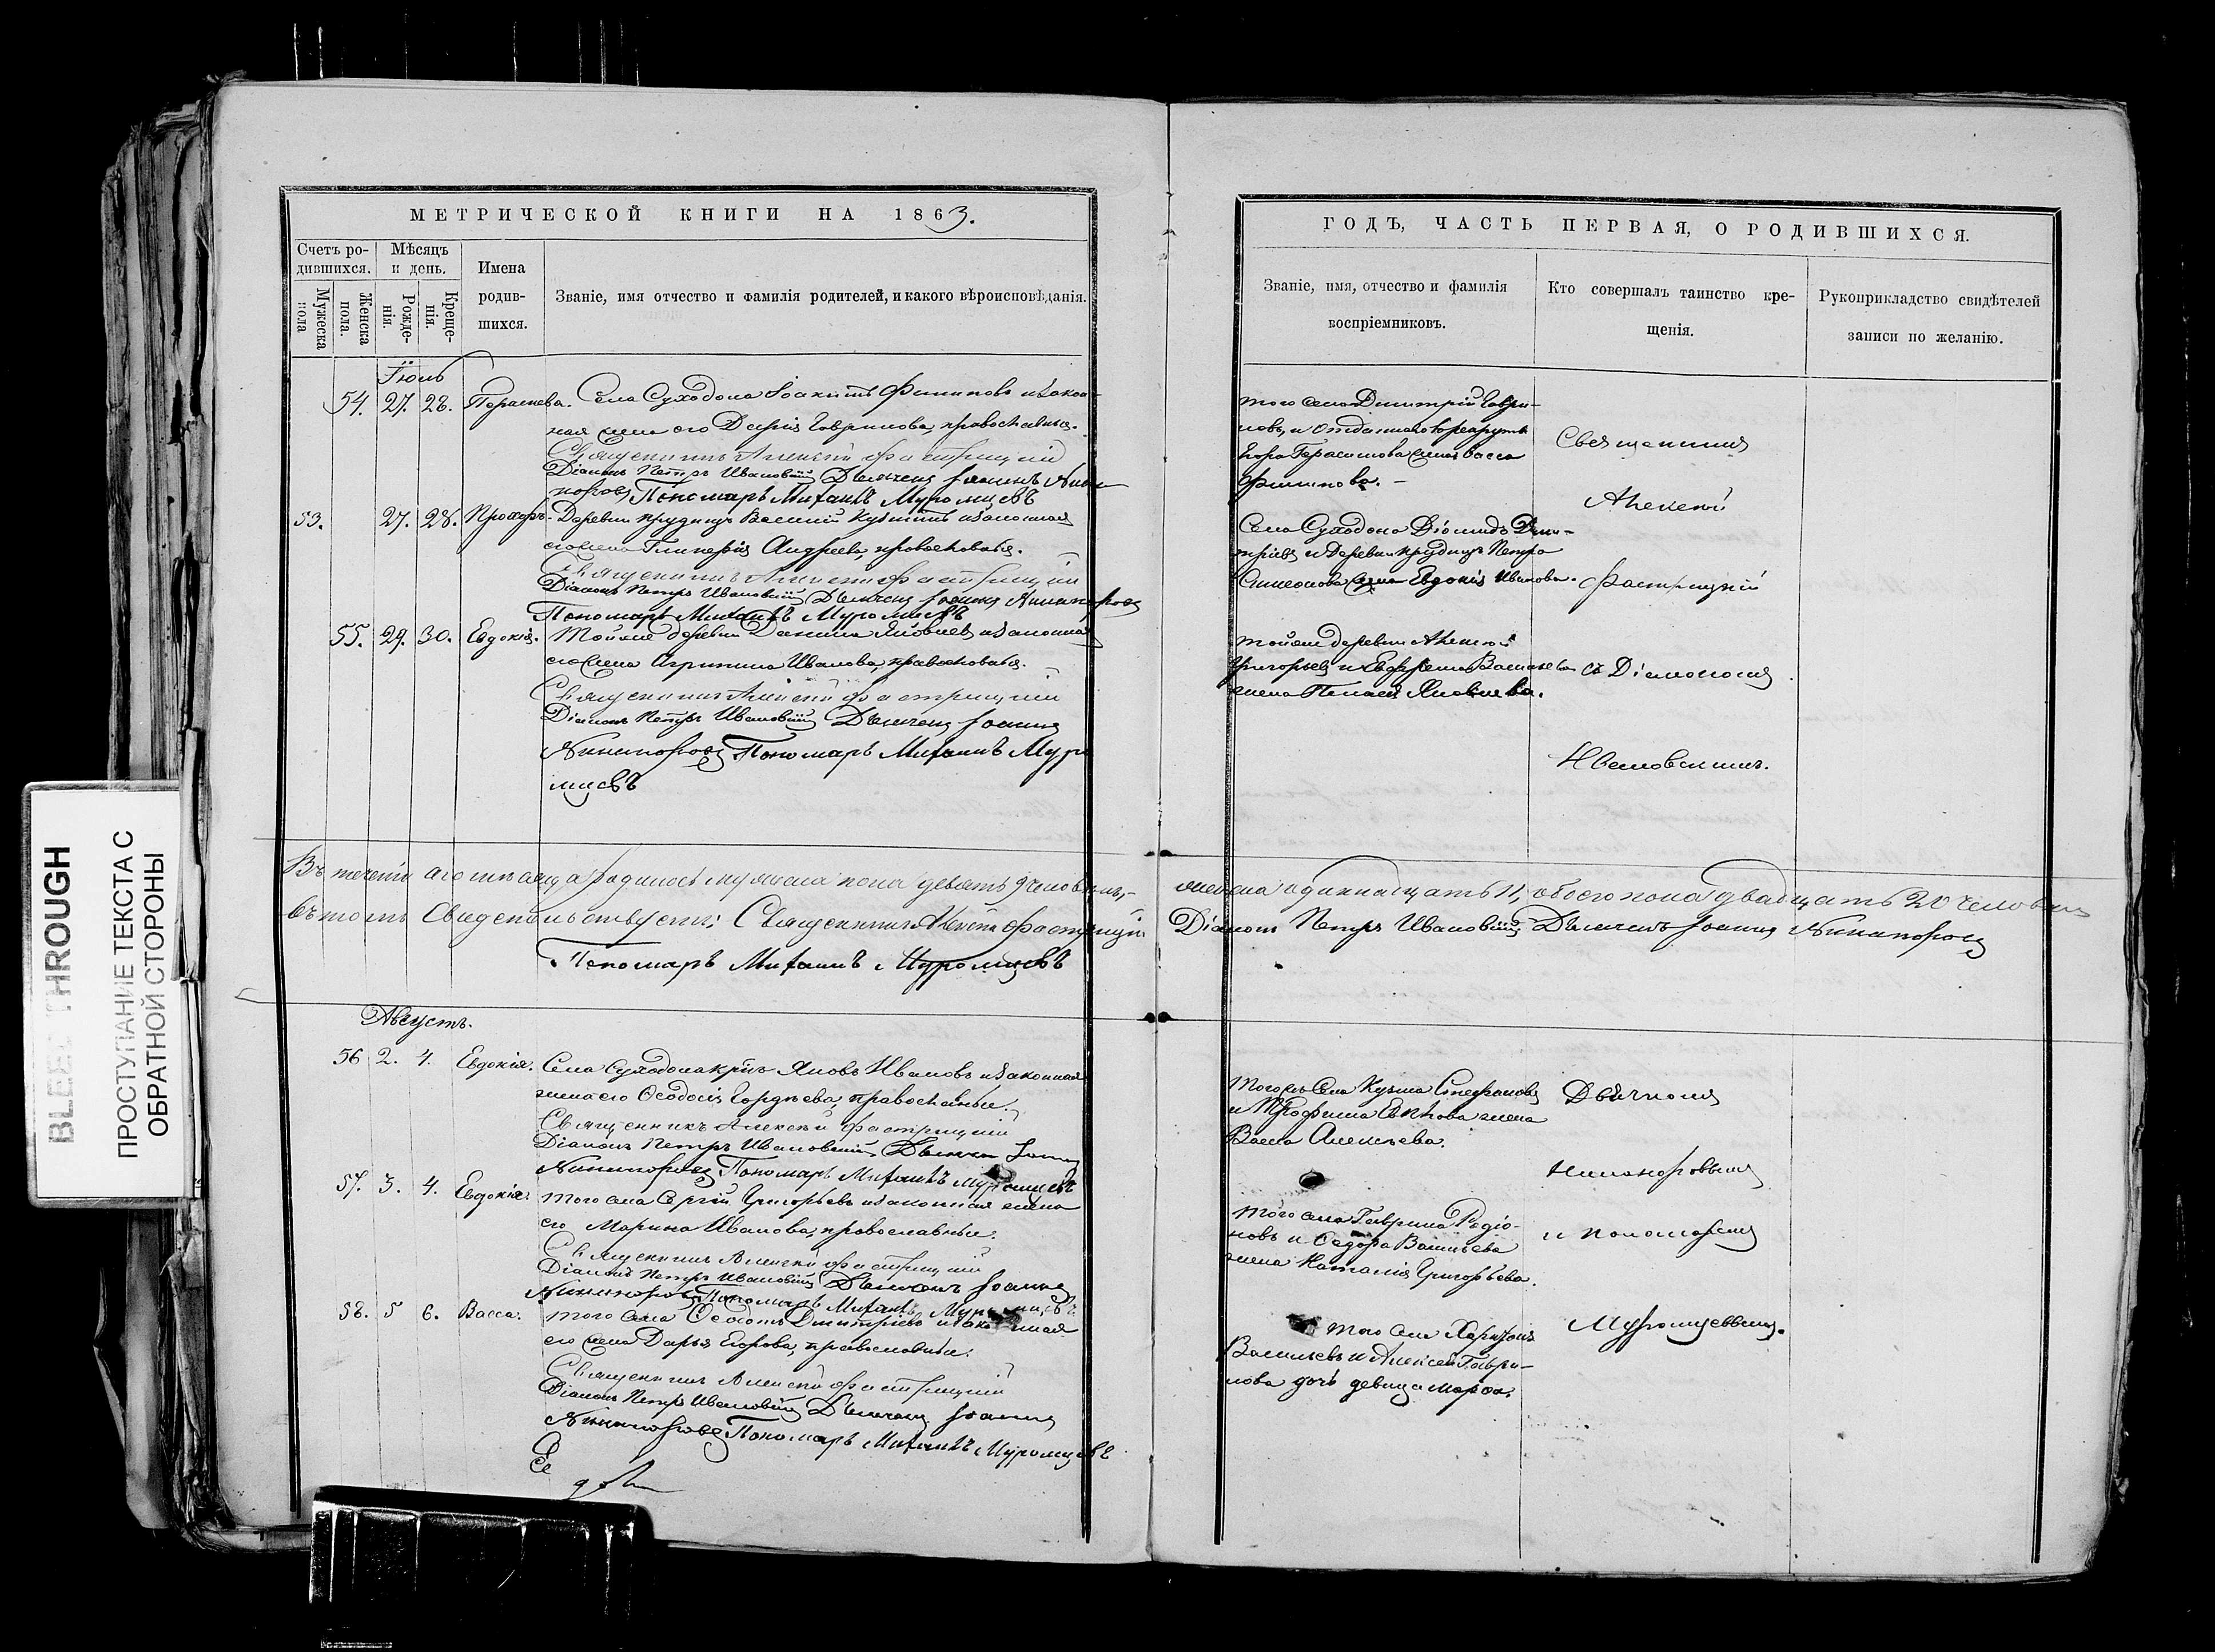 BLEED THROUGH
ПРОСТУПАНИЕ ТЕКСТА С
ОБРАТНОЙ СТОРОНЫ
МЕТРИЧЕСКОЙ КНИГИ НА 1863.
Счетъ ро-
дившихся.
Мужеска
пола
Женска
пола.
Мѣсяцъ
и день.
Рожде-
нія.
Креще-
нія.
Имена
родив-
шихся.
Званіе, имя отчество и фамилія родителей, и какого вѣроисповѣданія.
Іюль
54. 27. 28. Параскева. Села Суходола Іоакимъ Филиповъ и закон-
ная жена его Дарія Гаврилова, православныя.
Священникъ Алексѣй
Діаконъ Петръ Ивановскій Дьячекъ Іоаннъ Ника-
норовъ Пономарь Михаилъ Муромцевъ
53. 27. 28. Прохоръ. Деревни Прудищъ Василій Кузминъ и законная
его жена Гликерія Андреева, православныя.
Священникъ Алексѣй
Діаконъ Петръ Ивановскій Дьячекъ Іоаннъ Никаноровъ
Пономарь Михаилъ Муромцевъ
55. 29. 30. Евдокія. Тойже деревни Данила Яковлевъ и законная
его жена Агрипина Иванова, православныя.
Священникъ Алексѣй
Діаконъ Петръ Ивановскій Дьячекъ Іоаннъ
Никаноровъ Пономарь Михаилъ Муро
мцевъ
Въ теченіи сего мѣсяца родилось мужеска пола девять 9 человѣкъ,
въ томъ свидетельствуемъ: Священникъ Алексѣй
Пономарь Михаилъ Муромцевъ
Августъ.
56 2. 4. Евдокія. Села Суходола Яковъ Ивановъ и законная
жена его Ѳеодосія Гордѣева, православные.
Священникъ Алексѣй
Діаконъ Петръ Ивановскій Дьячекъ Іоаннъ
Никаноровъ Пономарь Михаилъ Муромцевъ
57. 3. 4. Евдокія. Того села Сергій Григорьевъ и законная жена
его Марина Иванова, православные.
Священникъ Алексѣй
Діаконъ Петръ Ивановскій Дьячекъ Іоаннъ
Никаноровъ Пономарь Михаилъ Муромцевъ
58. 5 6. Васса. Того села Дмитріевъ и законная
его жена Дарья Егорова, православные.
Священникъ Алексѣй
Діаконъ Петръ Ивановскій Дьячекъ Іоаннъ
Никаноровъ Пономарь Михаилъ Муромцевъ
ГОДЪ, ЧАСТЬ ПЕРВАЯ, О РОДИВШИХСЯ.
Званіе, имя, отчество и фамилія
воспріемниковъ.
Кто совершалъ таинство кре-
щенія.
Рукоприкладство свидѣтелей
записи по желанію.
того села Димитрій Гаври-
ловъ, и отданнаго въ рекруты
Егора Герасимова жена Васса
Филипова.
Села Суходола Діомидъ Дми-
тріевъ и деревни Прудищъ Петра
Симеонова жена Евдокія Иванова.
тойже деревни Алексѣй
Григорьевъ и Васильева
жена Пелагея Яковлева.
Священникъ
Алексѣй
съ Діакономъ
Ивановскимъ.
женска одиннадцать 11, обоего пола двадцать 20 человѣкъ
Діаконъ Петръ Ивановскій Дьячекъ Іоаннъ Никаноровъ
Тогожъ села Кузма Стефановъ
и Трофима жена
Васса Алексѣева.
Того села Гаврила Родіо-
новъ и Ѳедора Васильева
жена Наталія Григорьева.
Того села Харитонъ
Васильевъ и Алексѣя Гаври-
лова дочь девица Марѳа.
Дьячкомъ
Никаноровымъ
и пономаремъ
Муромцевымъ.